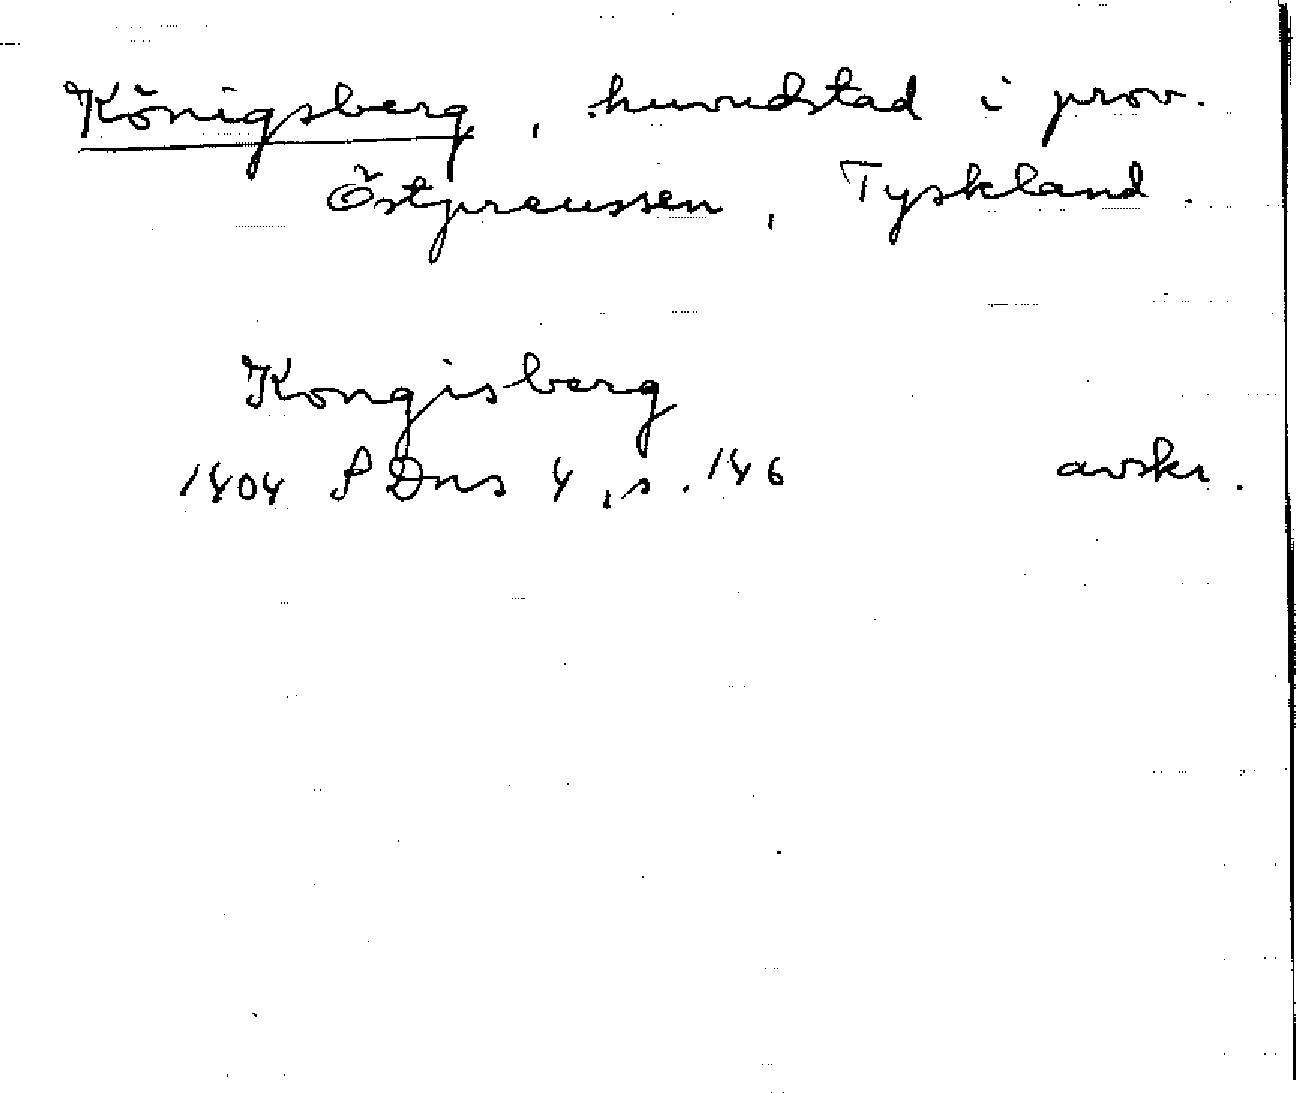 Königsberg, huvudstad i prov.
Östpreussen, Tyskland.
Kongisberg
1404 SDns 4, s. 146 avskr.